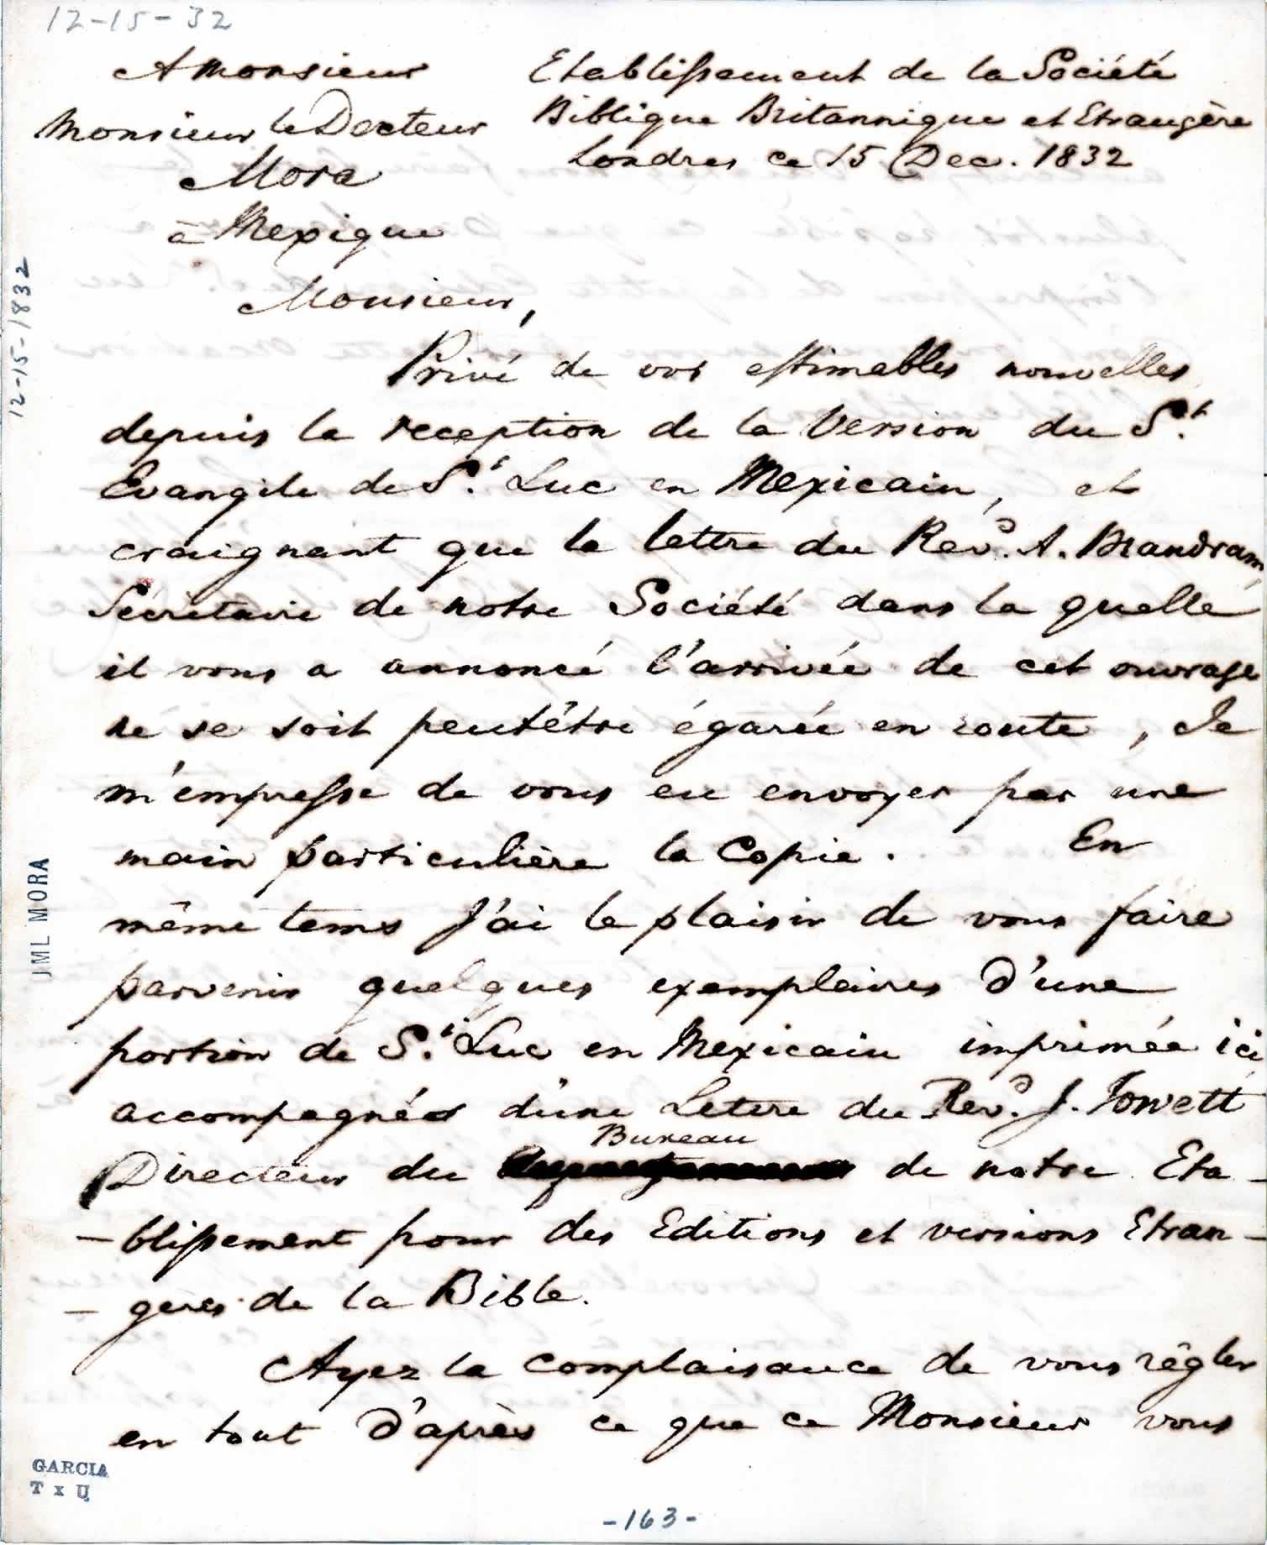 12-15-32
A Monsieur
Monsieur le Docteur
Mora
à Mexique
Etablissement de la Société
Biblique Britannique et Etrangère
Londres ce 15 Dec. 1832
Monsieur,
Privé de vos estimables nouvelles
depuis la reception de la Version du St.
Evangile de St. Luc en Mexicain, et
craignant que la lettre du Revd. A. Brandram
Sécretaire de notre Société dans la quelle
il vous a annoncé l'arrivée de cet ouvrage
ne se soit peutêtre égarée en route, Je
m'empresse de vous en envoyer par une
main particulière la Copie. En
même tems J'ai le plaisir de vous faire
parvenir quelques exemplaires d'une
portion de St. Luc en Mexicain imprimée ici
accompagnés d'une Lettre du Revd. J. Jowett
Directeur du Bureau de notre Eta-
-blissement pour des Editions et versions Etran-
-gères de la Bible.
Ayez la complaisance de vous régler
en tout d'après ce que ce Monsieur vous
12-15-1832
JML MORA
GARCIA
T x U
-163-